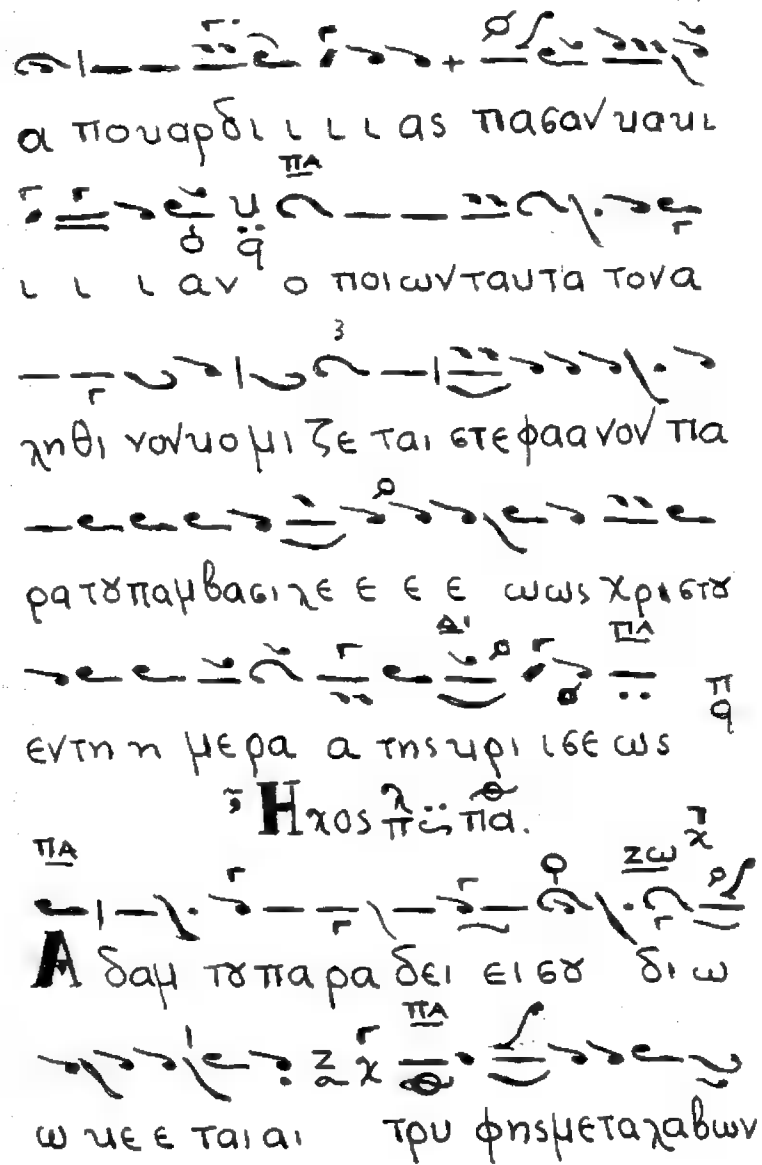 α πο καρδι ι ι ι ας πασαν κακι
ΠΑ
ι ι ι αν ο ποιων ταυτα τον α
ληθι νον κο μι ζε ται στε φαα νον πα
ρα τȣ παμ βασι λε ε ε ε ωως χρι στȣ
Δι ΠΑ
εν τη η με ρα α της κρι ισε ως
Ηχος λ π πα.
ΠΑ ΖΩ
Α δαμ τȣ πα ρα δει ει σȣ δι ω
ΠΑ
ω κε ε ται αι τρυ φης μετα λα βων